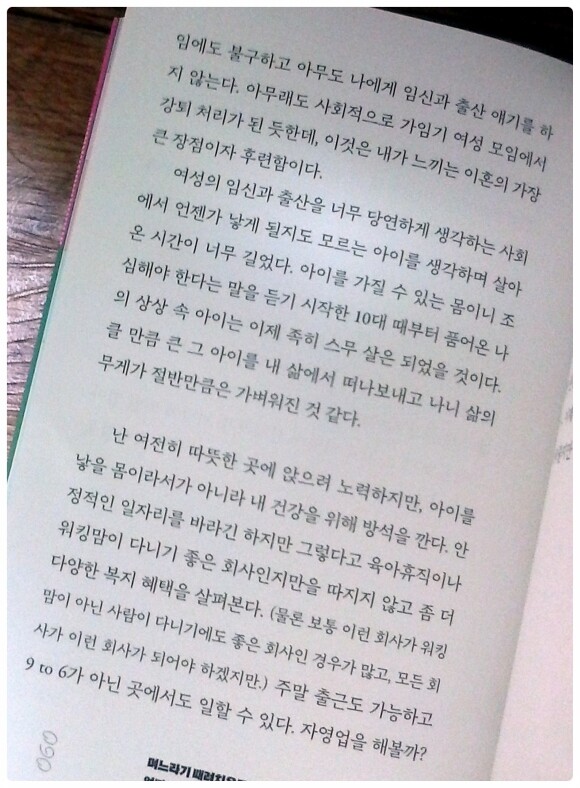 임에도 불구하고 아무도 나에게 임신과 출산 얘기를 하
지 않는다. 아무래도 사회적으로 가임기 여성 모임에서
강퇴 처리가 된 듯한데, 이것은 내가 느끼는 이혼의 가장
큰 장점이자 후련함이다.
여성의 임신과 출산을 너무 당연하게 생각하는 사회
에서 언젠가 낳게 될지도 모르는 아이를 생각하며 살아
온 시간이 너무 길었다. 아이를 가질 수 있는 몸이니 조
심해야 한다는 말을 듣기 시작한 10대 때부터 품어온 나
의 상상 속 아이는 이제 족히 스무 살은 되었을 것이다.
클 만큼 큰 그 아이를 내 삶에서 떠나보내고 나니 삶의
무게가 절반만큼은 가벼워진 것 같다.
난 여전히 따뜻한 곳에 앉으려 노력하지만, 아이를
낳을 몸이라서가 아니라 내 건강을 위해 방석을 깐다. 안
정적인 일자리를 바라긴 하지만 그렇다고 육아휴직이나
워킹맘이 다니기 좋은 회사인지만을 따지지 않고 좀 더
다양한 복지 혜택을 살펴본다. (물론 보통 이런 회사가 워킹
맘이 아닌 사람이 다니기에도 좋은 회사인 경우가 많고, 모든 회
사가 이런 회사가 되어야 하겠지만.) 주말 출근도 가능하고
9 to 6가 아닌 곳에서도 일할 수 있다. 자영업을 해볼까?
060
며느라기 때려치우